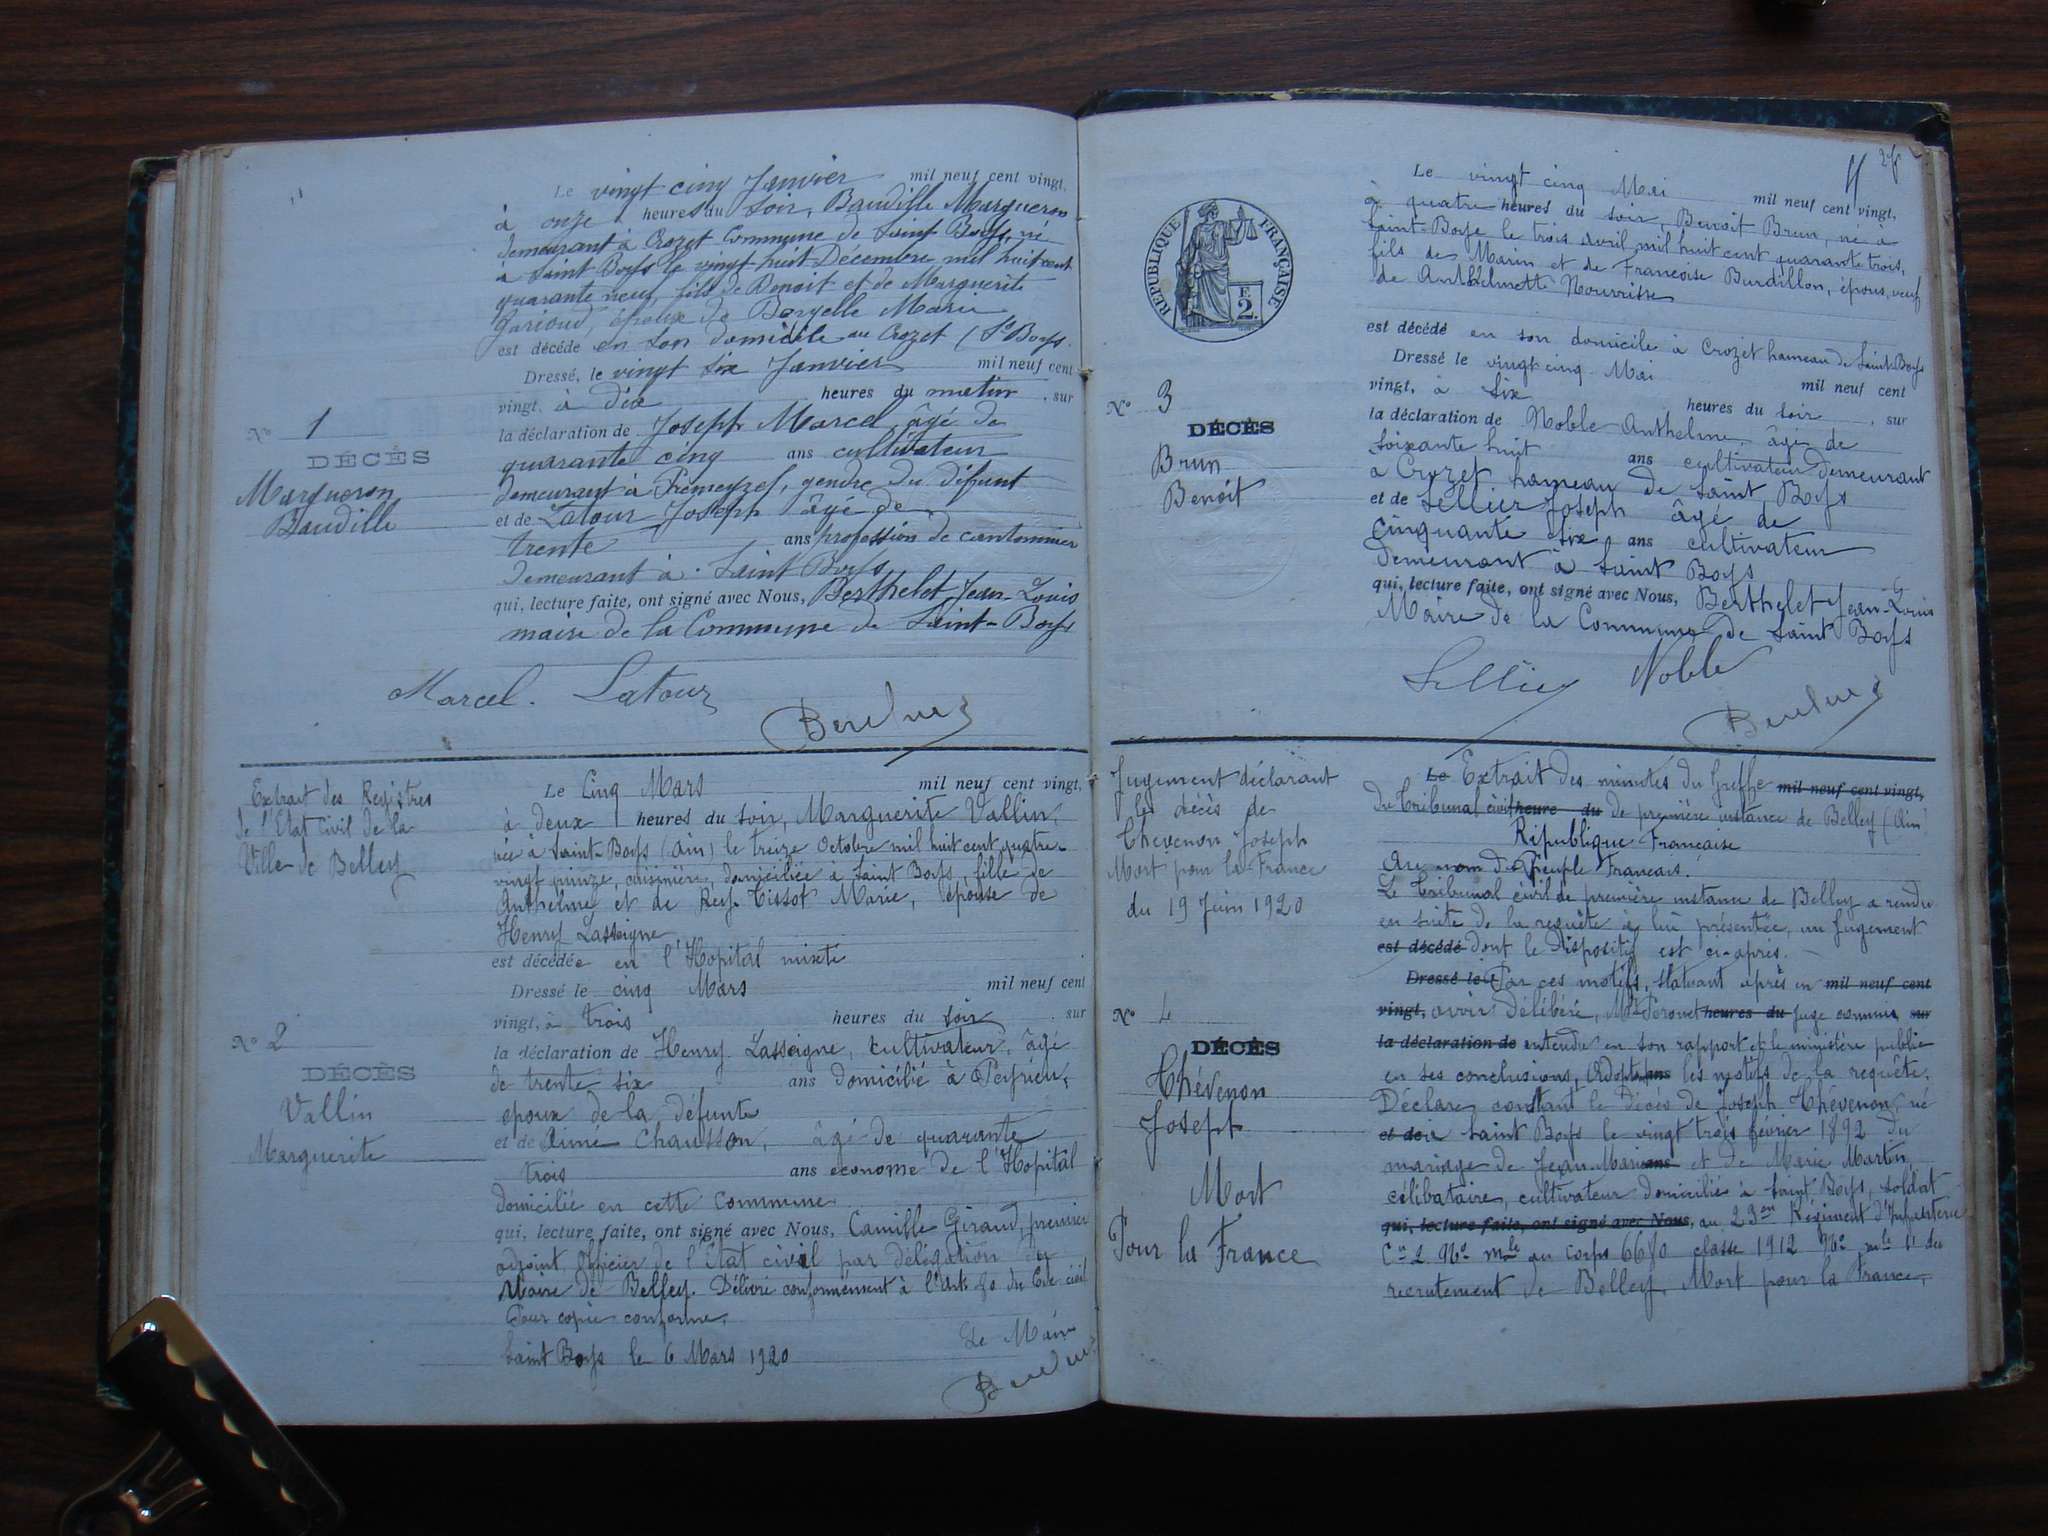 Le vingt cinq Janvier mil neuf cent vingt,
à onze heures du soir, Baudille Margueron
demeurant à Crozet Commune de Saint Boys, né
à Saint Boys le vingt huit Décembre mil huit cent
quarante neuf, fils de Benoit et de Marguerite
époux de Marie
est décédé en son domicile au Crozet (St Boys.
Dressé, le vingt six Janvier mil neuf cent
vingt, à dix heures du matin, sur
la déclaration de Joseph Marcel, âgé de
quarante cinq ans cultivateur
demeurant à gendre du défunt
et de Latour Joseph âgé de
trente ans profession de cantonnier
demeurant à Saint Boys
qui, lecture faite, ont signé avec Nous, Berthelet Jean-Louis
maire de la Commune de Saint-Boys
Marcel. Latour
No 1
DÉCÈS
Margueron
Baudille
Extrait des Registres
de l'Etat Civil de la
Ville de Belley
Le Cinq Mars mil neuf cent vingt,
à deux heures du soir, Marguerite Vallin,
née à Saint-Boys (Ain) le treize Octobre mil huit cent quatre-
vingt quinze, cuisinière, domiciliée à Saint Boys, fille de
Anthelme et de Rey-Tissot Marie, épouse de
Henry Lassaigne
est décédée en l'Hopital mixte
Dressé le cinq Mars mil neuf cent
vingt, à trois heures du soir, sur
la déclaration de Henry Lassaigne, cultivateur, âgé
de trente six ans domicilié à Peyrieu,
epoux de la défunte
et de Aimé Chausson, âgé de quarante
trois ans econome de l'Hopital
domicilié en cette commune
qui, lecture faite, ont signé avec Nous, Camille Giraud, premier
adjoint, Officier de l'Etat civil par délégation du
Maire de Belley. Délivré conformément à l'Art. 80 du Code civil
Pour copie conforme,
Saint Boys le 6 Mars 1920 Le Maire
No 2
DÉCÈS
Vallin
Marguerite
Le vingt cinq Mai mil neuf cent vingt,
à quatre heures du soir, Benoit Brun, né à
Saint-Boys le trois avril mil huit cent quarante trois,
fils de Marin et de Francoise Burdillon, époux, veuf
de Anthelmette Nourrisse
est décédé en son domicile à Crozet hameau de Saint Boys
Dressé le vingt cinq Mai mil neuf cent
vingt, à six heures du soir, sur
la déclaration de Noble Anthelme, âgé de
soixante huit ans cultivateur demeurant
à Crozet hameau de Saint Boys
et de Sellier Joseph âgé de
cinquante six ans cultivateur
demeurant à Saint Boys
qui, lecture faite, ont signé avec Nous, Berthelet Jean-Louis
Maire de la Commune de Saint Boys
Noble
RÉPUBLIQUE FRANÇAISE
2
No 3
DÉCÈS
Brun
Benoit
Jugement déclarant
les décès de
Thévenon Joseph
Mort pour la France
du 19 Juin 1920
Le Extrait des minutes du Greffe mil neuf cent vingt,
du Tribunal civil heure du de première instance de Belley (Ain)
République Française
Au nom du Peuple Francais.
Le Tribunal civil de première instance de Belley a rendu
en suite de la requête à lui présentée, un jugement
est décédé dont le dispositif est ci-après.
Dressé le Par ces motifs, statuant après en mil neuf cent
vingt, avoir délibéré, Mr Peronet heures du juge commis, sur
la déclaration de entendu en son rapport et le ministère public
en ses conclusions, Adoptant ans les motifs de la requête,
Déclare constant le décès de Joseph Thévenon, né
et de à Saint Boys le vingt trois février 1892 du
mariage de Jean Marie ans et de Marie Martin,
célibataire, cultivateur domicilié à Saint Boys, soldat
qui, lecture faite, ont signé avec Nous, au 23me Régiment d'Infanterie
No mle au corps 6680 classe 1912 No mle du
recrutement de Belley, Mort pour la France,
No 4
DÉCÈS
Thévenon
Joseph
Mort
Pour la France